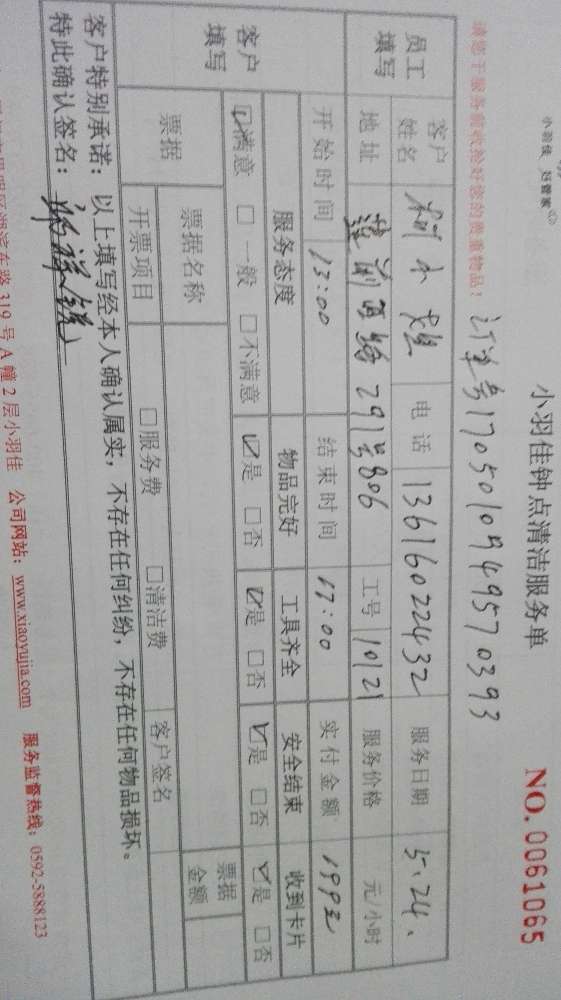 小羽佳 好管家
小羽佳钟点清洁服务单
NO. 0061065
请您于服务前收捡好您的贵重物品！
订单号1705010949570393
员工填写
客户姓名
电话 13616022432
服务日期 5.24.
地址 291号806
工号 10121
服务价格 元/小时
开始时间 13:00
结束时间 17:00
实付金额 199元
客户填写
服务态度 物品完好 工具齐全 安全结束 收到卡片
☑满意 □一般 □不满意 ☑是 □否 ☑是 □否 ☑是 □否 ☑是 □否
票据
票据名称
票据金额
开票项目 □服务费 □清洁费 客户签名
客户特别承诺：以上填写经本人确认属实，不存在任何纠纷，不存在任何物品损坏。
特此确认签名：
东路319号A幢2层小羽佳 公司网站：www.xiaoyujia.com 服务监督热线：0592-5888123